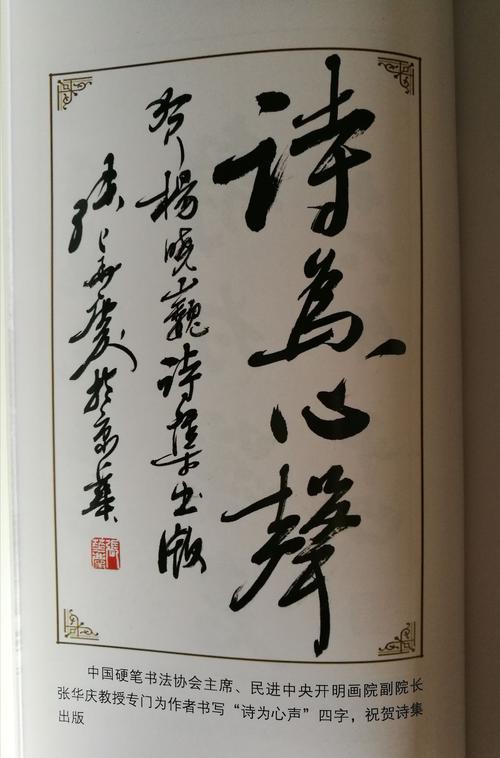 詩為心聲
賀楊曉巍詩集出版
張華慶於京華
中国硬笔书法协会主席、民进中央开明画院副院长
张华庆教授专门为作者书写“诗为心声”四字，祝贺诗集
出版